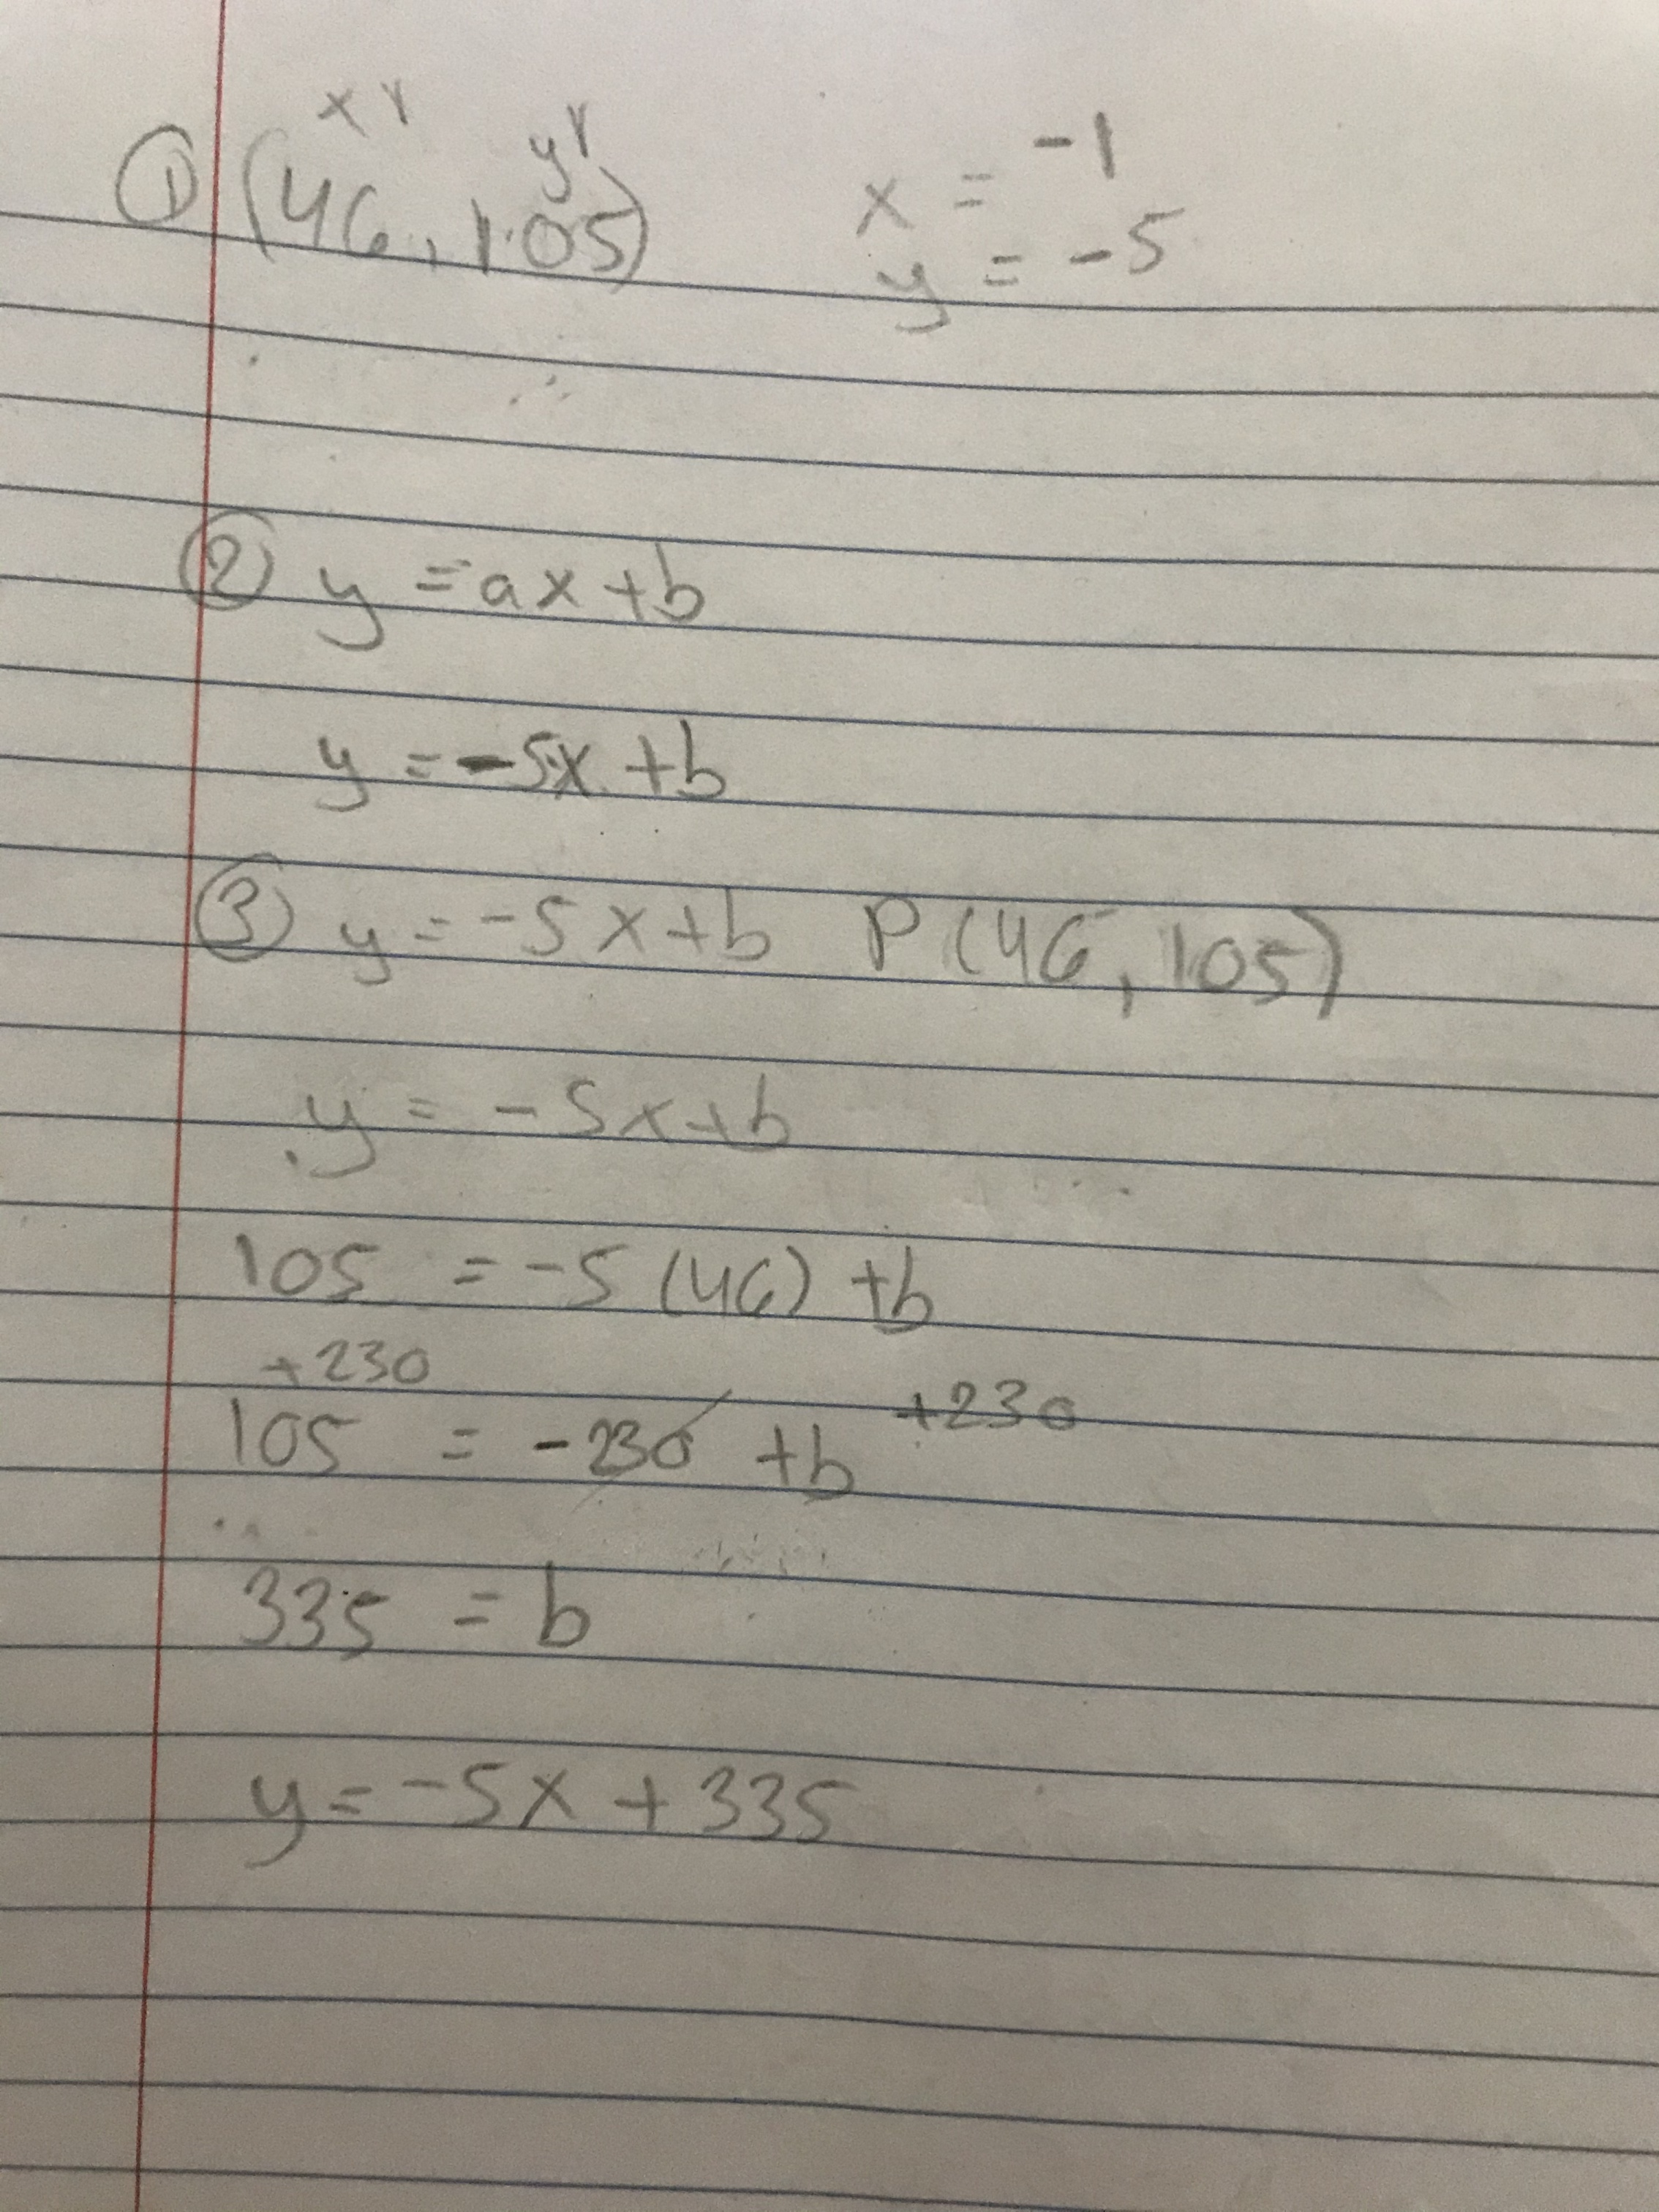 x1 y1
① (46, 105) x = -1
y = -5
② y = ax + b
y = -5x + b
③ y = -5x + b P(46, 105)
y = -5x + b
105 = -5(46) + b
+230 +230
105 = -230 + b
335 = b
y = -5x + 335